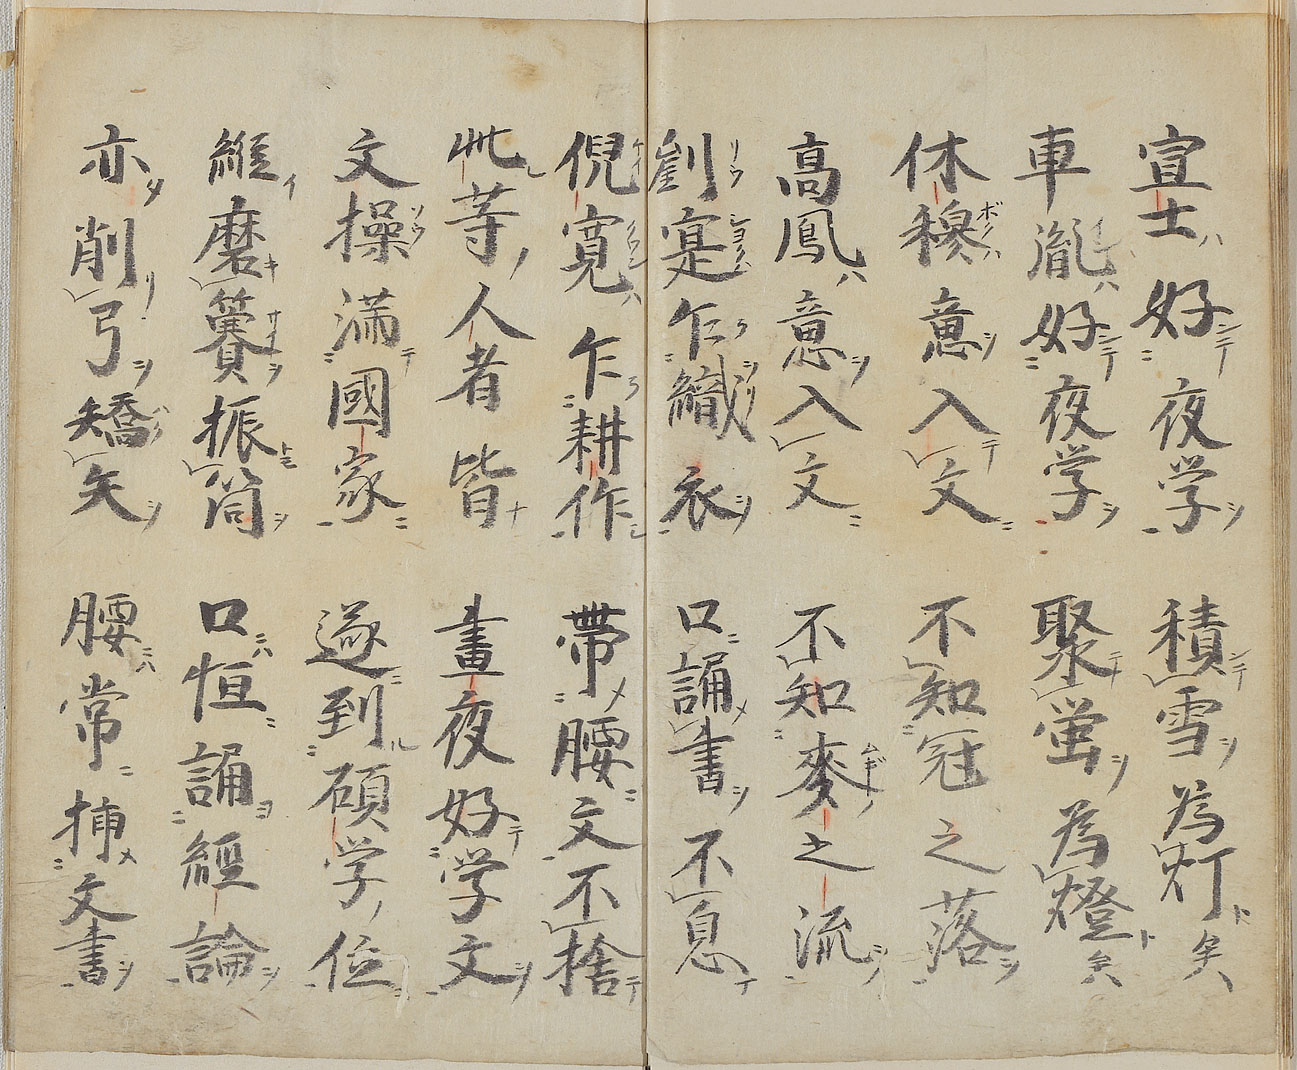 宣士好夜学 積雪為灯矣
車胤好夜学 聚蛍為燈矣
休穆意入文 不知冠之落
高鳳意入文 不知麥之流
劉寔乍織衣 口誦書不息
倪寛乍耕作 帯腰文不捨
此等人者皆 晝夜好学文
文操満國家 遂到碩学位
縦磨簺振筒 口恒誦經論
亦削弓矯矢 腰常挿文書